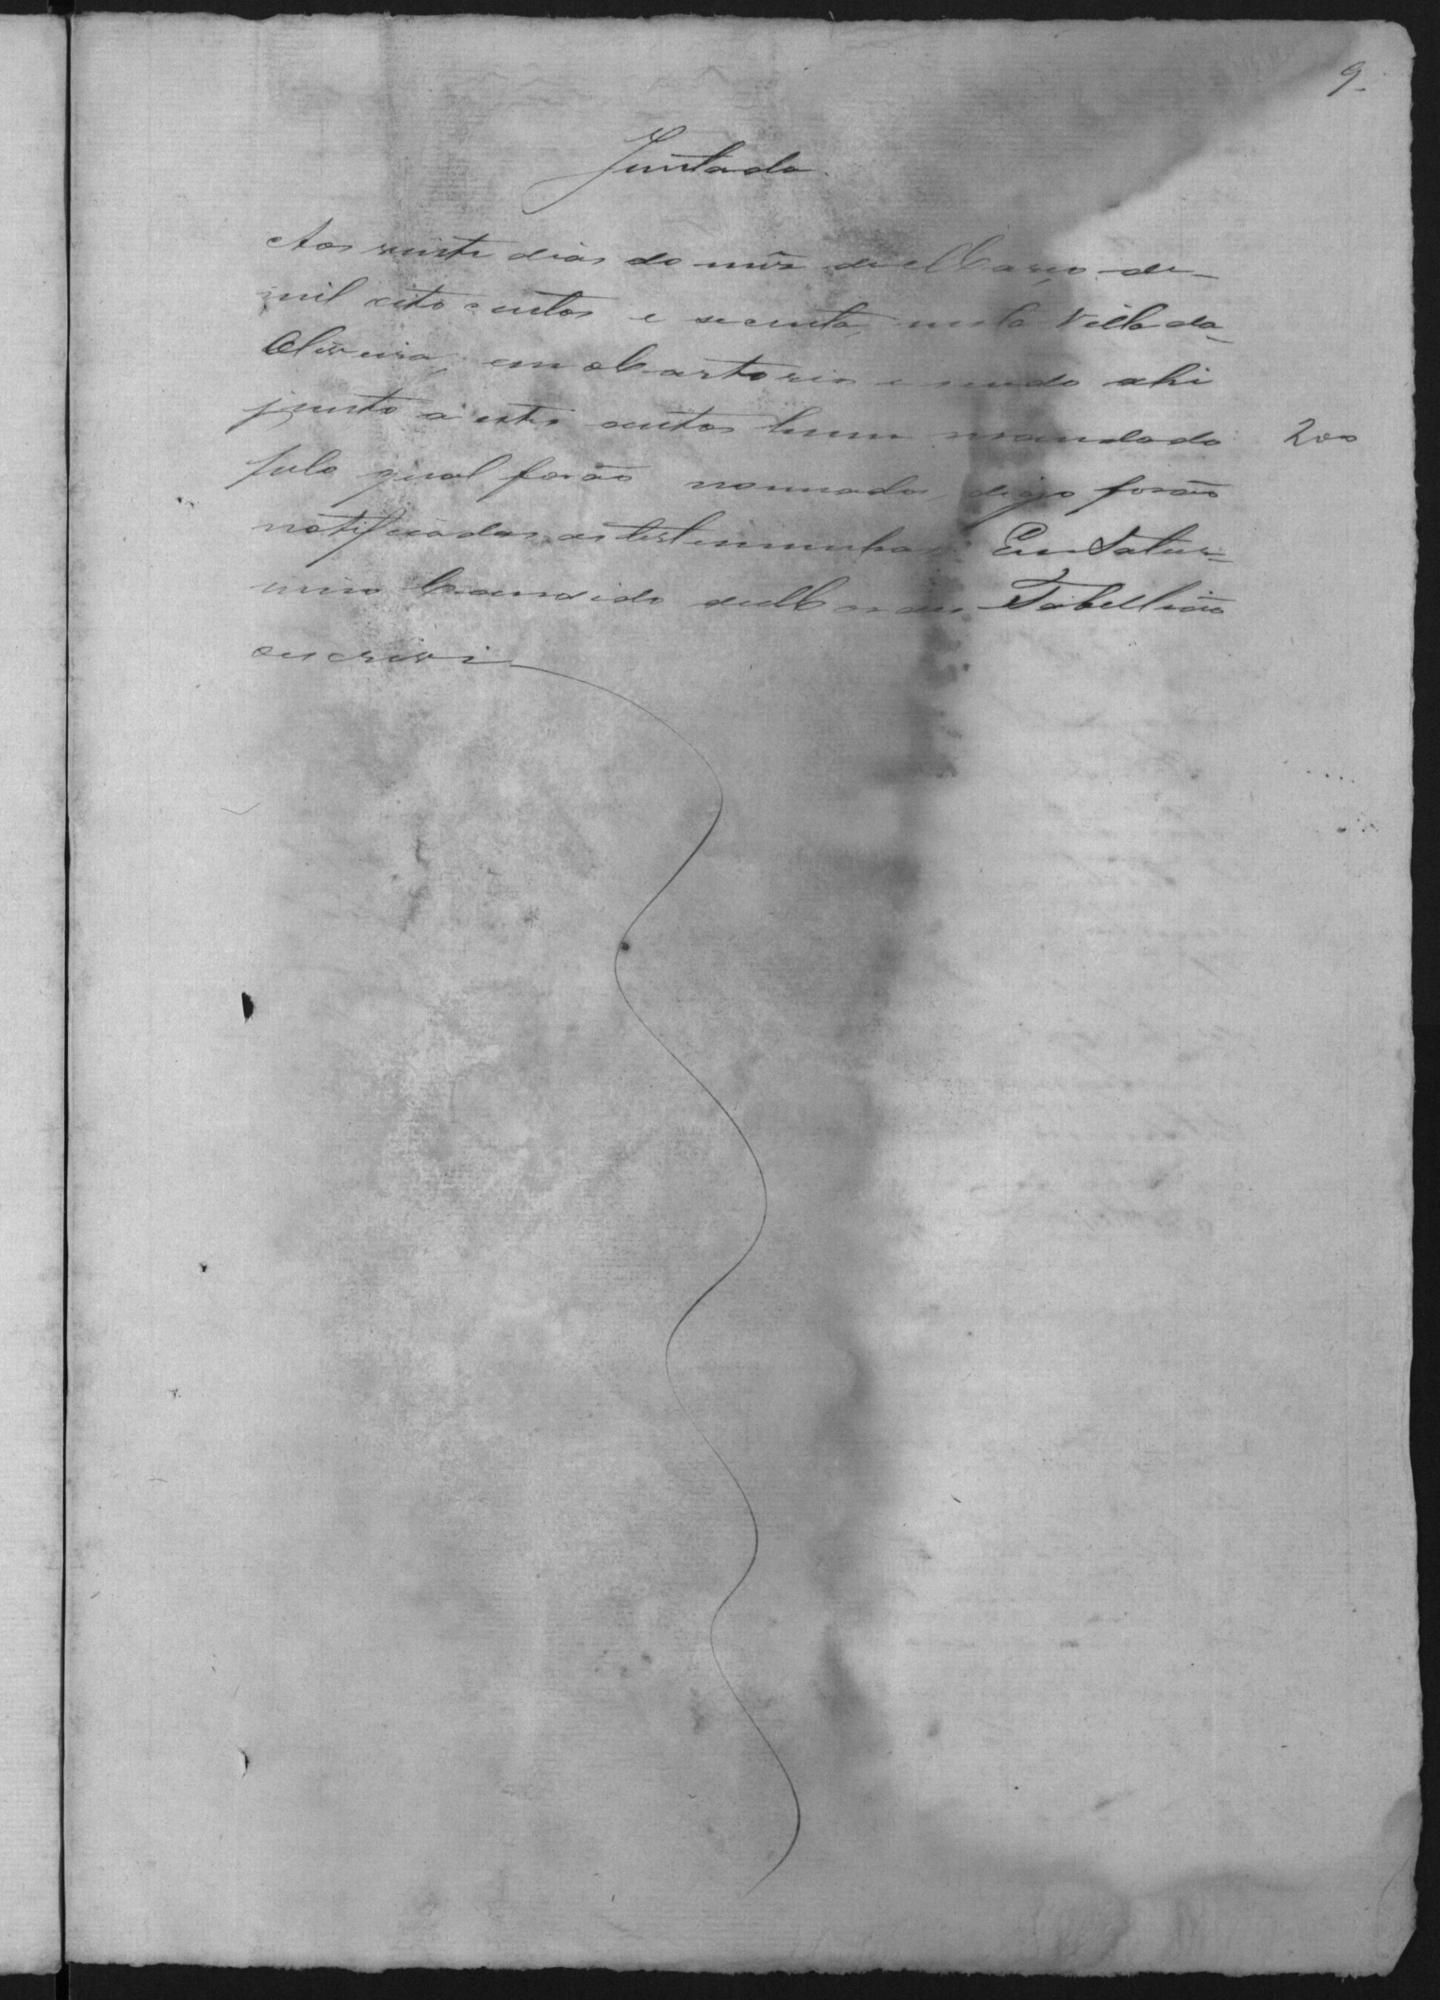 9.
Juntada
Aos vinte dias do mês de Março de
mil oito centos e secenta, nesta Villa da
Oliveira, em o Cartorio e sendo ahi
junto a estes autos hum mandado 200
pelo qual forão nomiadas, digo forão
notificadas as testimunhas. Eu Satur=
nino Candido de Tabellião
escrevi